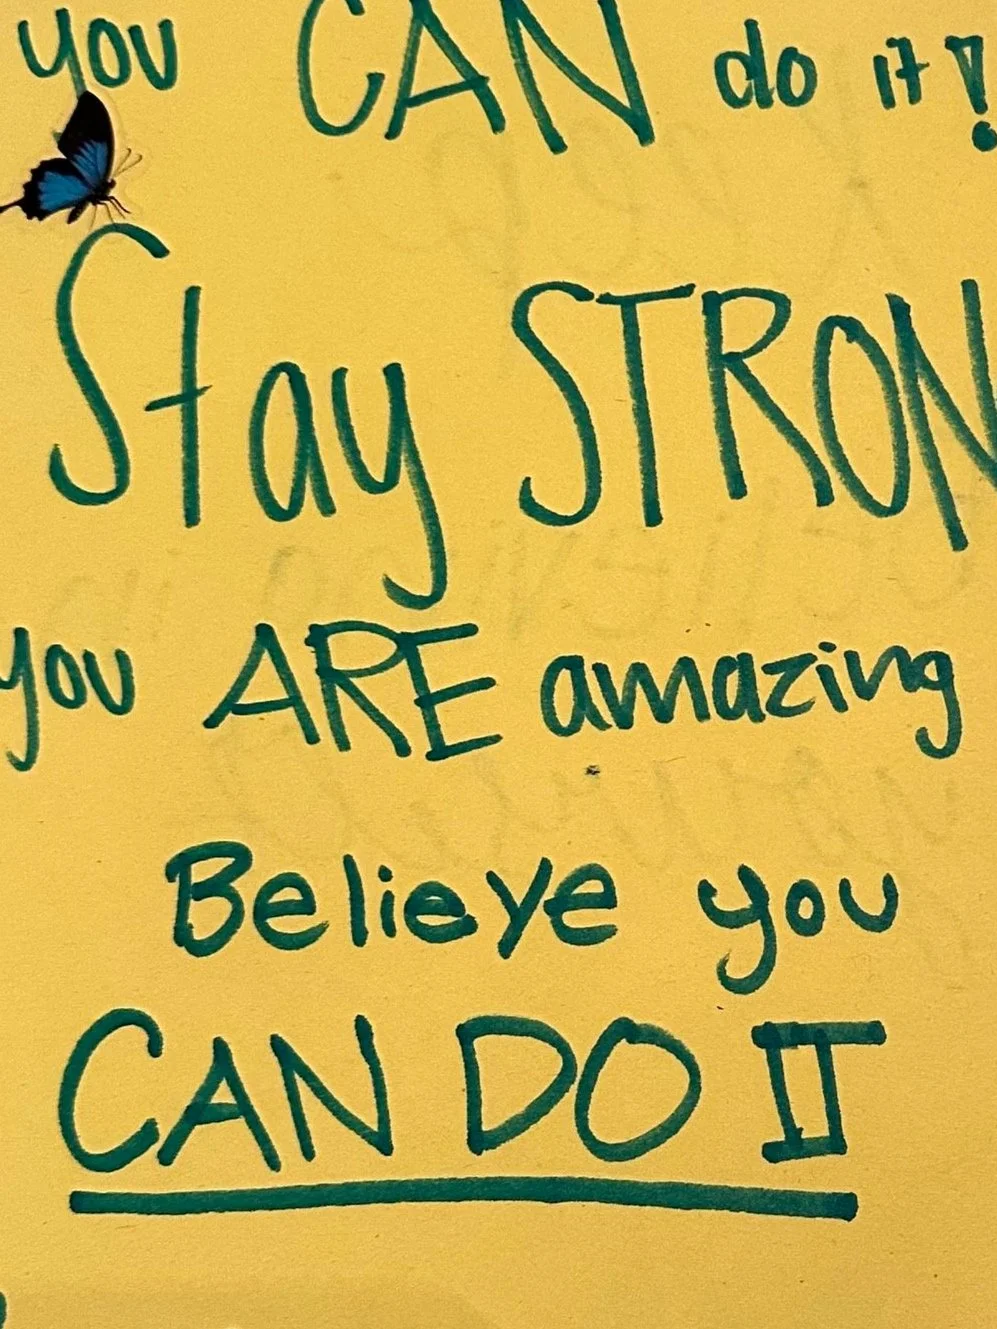 you CAN do it!
Stay STRON
you ARE amazing
Believe you
CAN DO IT